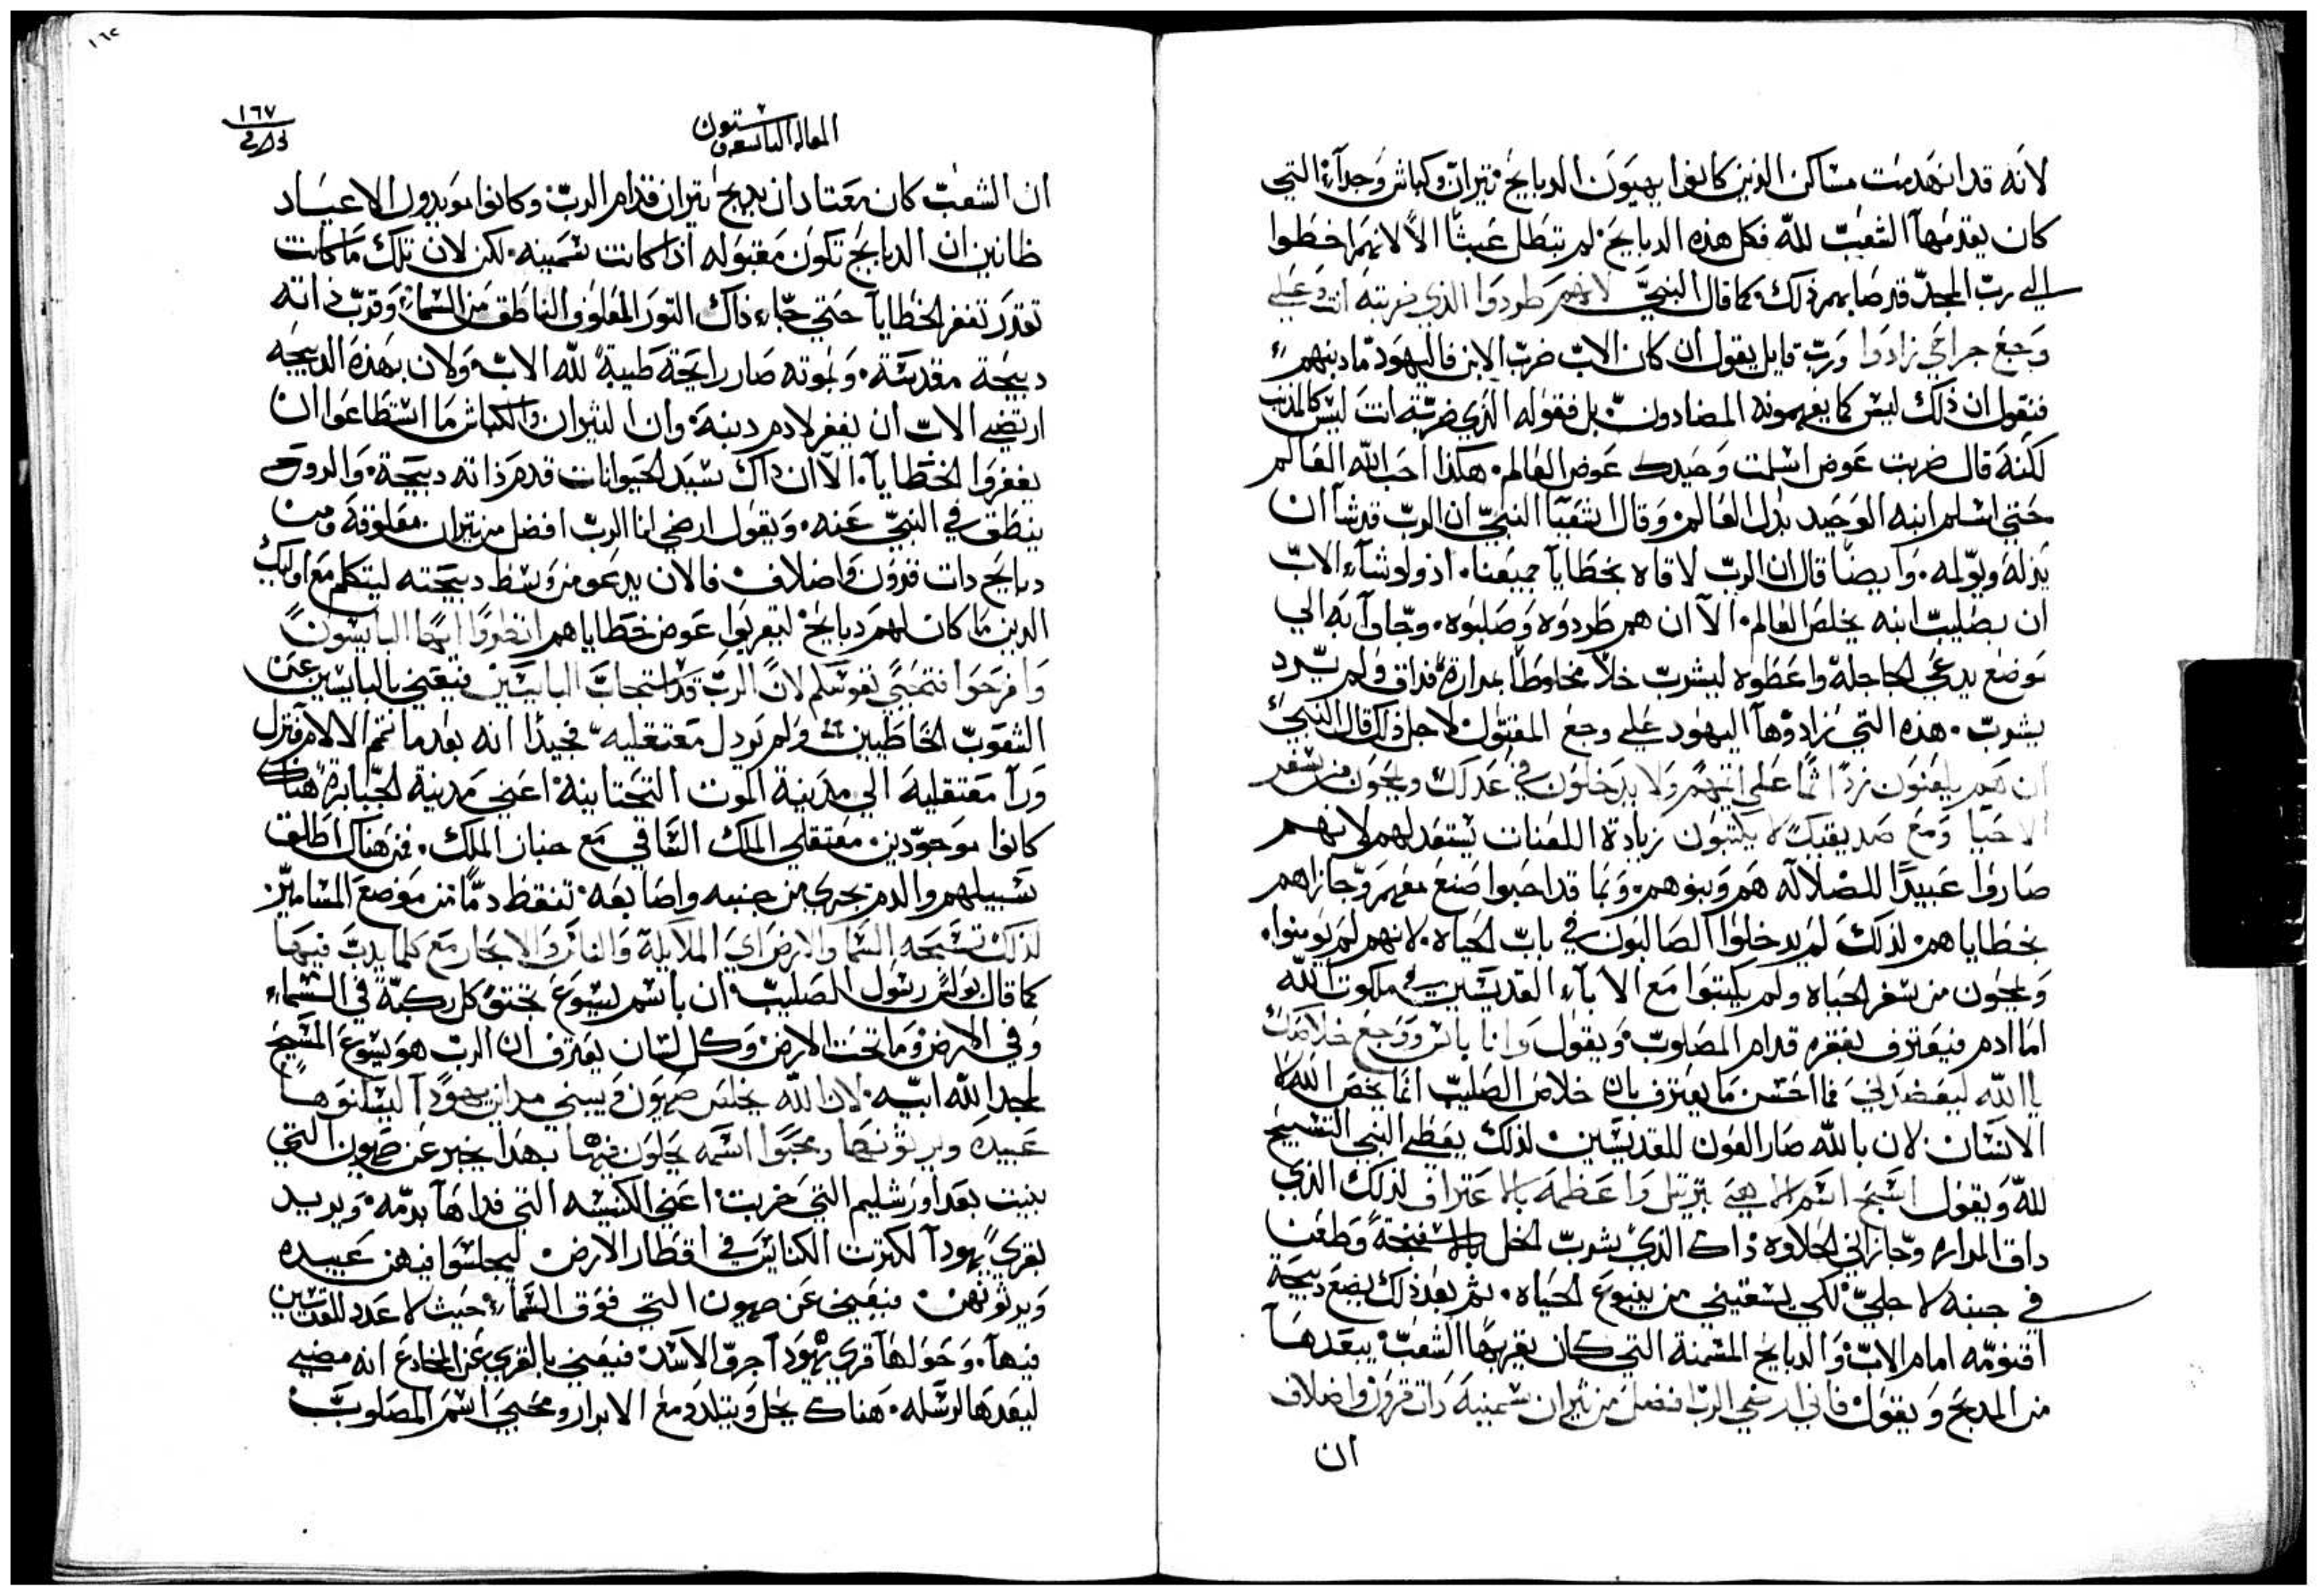 لانه قد انهدمت مساكن الذين كانوا يهيون الدبايح تيران وكباش وجداء التي
كان يقدمها الشعب لله فكل هذه الدبايح لم تبطل عبثًا الا لانهم اخطوا
الي رب المجد قد صابهم ذلك وكما قال النبي لانهم طردوا الذي ضربته انت وعلي
وجع جراحي زادوا ورب قايل يقول ان كان الاب ضرب الابن فاليهود ما دينهم
فنقول ان ذلك ليس كما يفهمونه المضادون بل فقوله الذي ضربته انت ليس كالمذنب
لكنه قال ضربت عوض اسلمت وحيدك عوض العالم هكذا احب الله العالم
حتي اسلم ابنه الوحيد بدل العالم وقال اشعيا النبي ان الرب قد شا ان
يذله ويولمه وايضا قال ان الرب لاقاه بخطايا جميعنا اذ ولو شاء الاب
ان بصليب ابنه يخلص العالم الا ان هم طردوه وصلبوه وجاوا به الي
موضع يدعي الجاجلة واعطوه ليشرب خلا مخلوطا بمرارة فداق ولم يرد
يشرب هذه التي زادوها اليهود علي وجع المقتول لاجل ذلك قال النبي
ان هم يلعنون زد اثما علي اثمهم ولا يدخلون في عدلك ويمحون من سفر
الاحيا ومع صديقيك لا يكتبون زيادة اللعنات يستعد لهم لانهم
صاروا عبيدا للضلاله هم وبنوهم وبما قد احبوا صنع معهم وجازاهم
بخطاياهم لذلك لم يدخلوا الصالبون في باب الحياه لانهم لم يومنوا
ويمحون من سفر الحياه ولم يكتبوا مع الاباء القديسين في ملكوت الله
اما ادم فيعترف بفقره قدام المصلوب ويقول وانا بائس ووجع خلاصك
يا الله ليعضدني فما احسن ما يعترف بان خلاص الصليب انما يخص الله لا
الانسان لان بالله صار العون للقديسين لذلك يعطي النبي التسبيح
لله ويقول اسبح اسم الاهي بترتيل واعظمه بالاعتراف لذلك الذي
داق المراره وجازاني الحلاوه ذاك الذي شرب الخل بالاسفنجة وطعن
في جنبه لاجلي لكي يسقيني من ينبوع الحياه ثم بعد ذلك يضع دبيحة
اقنومه امام الاب والدبايح المسمنة التي كان يقربها الشعب يبعدها
من المدبح ويقول فاني ارضي الرب افضل من تيران سمينية دات قرون واضلاف
ان
١٦٧
المقاله التاسعه وستون
ان الشعب كان معتاد ان يدبح تيران قدام الرب وكانوا مويدون الاعياد
ظانين ان الدبايح تكون مقبوله اذا كانت سمينه لكن لان تلك ما كانت
تقدر تغفر الخطايا حتي جاء ذاك التور المعلوف الناطق من السماء وقرب ذاته
دبيحة مقدسة وبموته صار رايحة طيبة لله الاب ولان بهذه الدبيحه
ارتضي الاب ان يغفر لادم دينه وان التيران والكباش ما استطاعوا ان
يغفروا الخطايا الا ان ذاك سيد الحيوانات قدم ذاته دبيحة والروح
ينطق في النبي عنه ويقول ارضي انا الرب افضل من تيران معلوفة ومن
دبايح دات قرون واضلاف فالان يدعو من وسط دبيحته ليتكلم مع اوليك
الدين ما كان لهم دبايح ليقربوا عوض خطاياهم انظروا ايها البايسون
وافرحوا فتحيي نفوسكم لان الرب قد استجاب البايسين فيعني بالبايسين عن
الشعوب الخاطيين ولم يردل معتقليه فجيدا انه بعدما تمم الالام فنزل
ورا معتقليه الي مدينة الموت التحتانية اعني مدينة الجبابرة هناك
كانوا موجودين معتقلي الملك الشاقي مع جنان الملك فمن هناك اطلق
سبيلهم والدم يجري من جنبه واصابعه تنقط دما من موضع المسامير
لذلك تسبحه السما والارض اي الملايكة والناس والابحار مع كلما يدب فيها
كما قال بولس رسول الصليب ان باسم ليسوع تجثو كل ركبة في السماء
وفي الارض وما تحت الارض وكل لسان يعترف ان الرب هو يسوع المسيح
لمجد الله ابيه لان الله يخلص صهيون ويبني مداين يهودا ليسكنوها
عبيده ويرثونها ومحبوا اسمه يحلون فيها بهذا يخبر عن صهيون التي
بنيت بعد اورشليم التي خربت اعني الكنيسه التي فداها بدمه ويريد
بقري يهودا لكثرت الكنايس في اقطار الارض ليجلسوا فيهن عبيده
ويرثونهن فيعني عن صهيون التي فوق السماء حيث لا عدد للقديسين
فيها وحولها قري يهودا جرو الاسد فيعني بالقري عن المخادع انه مضي
ليعدها لرسله هناك يحل ويتلدد مع الابرار ومحبي اسم المصلوب